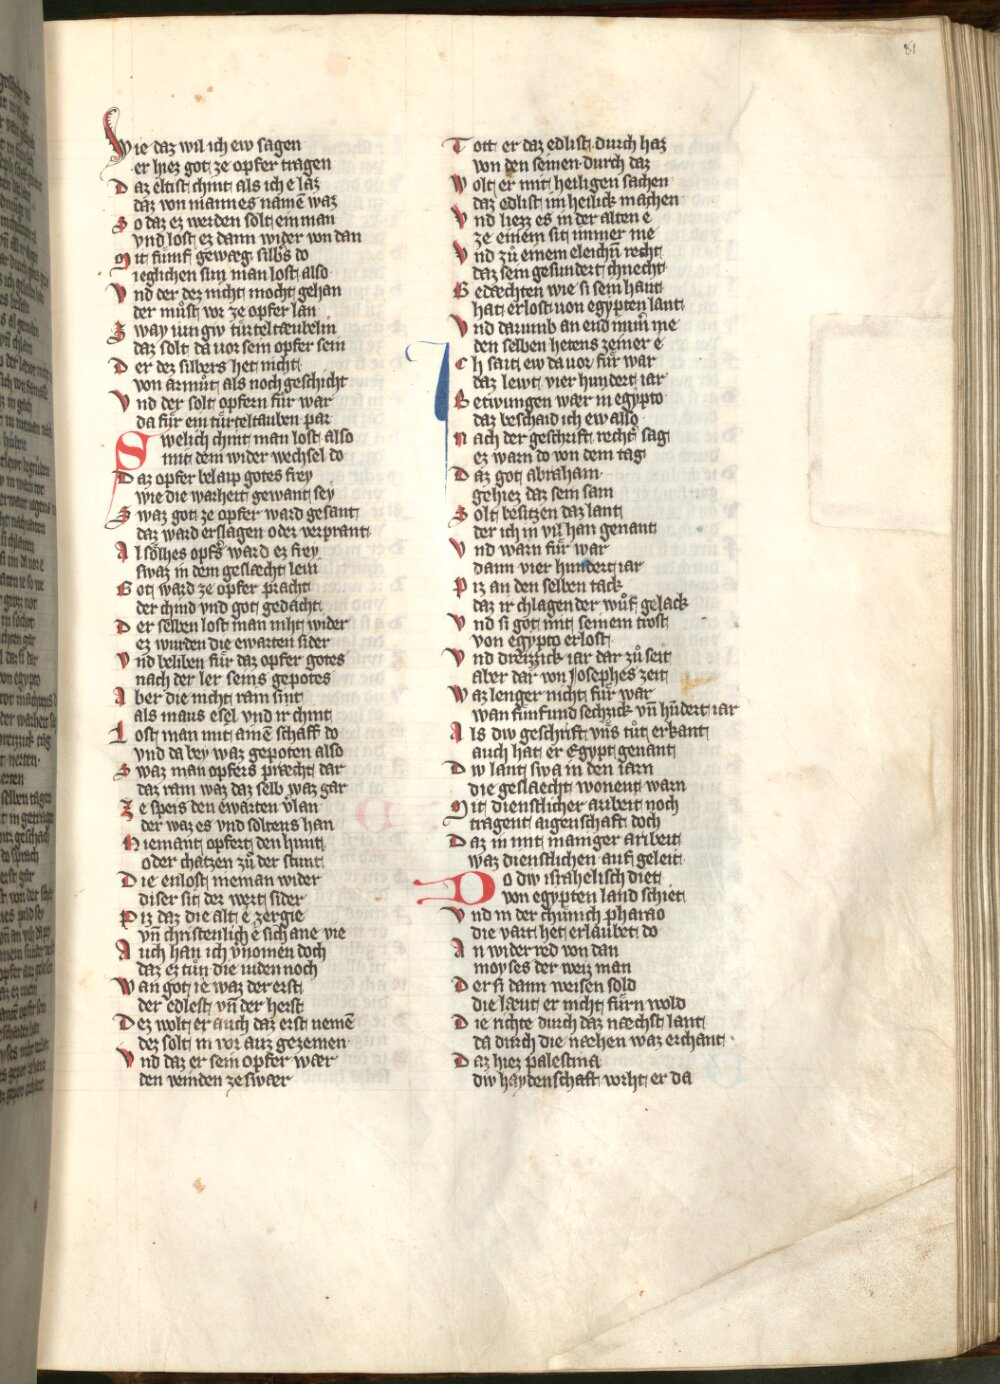 81
Wie daz wil ich ew sagen
er hiez got ze opfer tragen
Daz eltist chint als ich e laz
daz von mannes namē waz
So daz ez werden solt ein man
vnd lost ez dann wider von dan
Mit fümf gewæg silbs do
ieglichen sun man lost also
Vnd der dez nicht mocht gehan
der muͤst vor ze opfer lan
Zway iungw türteltæubelin
daz solt da uor sein opfer sein
Der dez silbers het nicht
von armuͤt als noch geschicht
Vnd der solt opfern für war
da für ein türteltauben par
Swelich chint man lost also
mit dem wider wechsel do
Daz opfer belaip gotes frey
wie die warheit gewant sey
Swaz got ze opfer ward gesant
daz ward erslagen oder verprant
Al soͤlhes opfs ward ez frey
swaz in dem geslæcht leui
Got ward ze opfer pracht
der chind vnd got gedacht
Der selben lost man niht wider
ez wurden die ewarten sider
Vnd beliben für daz opfer gotes
nach der ler seins gepotes
Aber die nicht rain sint
als maus esel vnd ir chint
Lost man mit ainē schaff do
vnd da bey waz gepoten also
Swaz man opfers præcht dar
daz rain waz daz selb waz gar
Ze speis den ewarten v̄lan
der waz es vnd soltens han
Niemant opfert den hunt
oder chatzen zuͦ der stunt
Die enlost nieman wider
diser sit der wert sider
Piz daz die alt e zergie
vn̄ christenlich e sich ane vie
Auch han ich v̄nomen doch
daz ez tuͤn die iuden noch
Wan got ie waz der erst
der edlest vn̄ der herst
Dez wolt er auch daz erst nemē
dez solt in vor auz gezemen
Vnd daz er sein opfer wær
den veinden ze swær
Tott er daz edlist durch haz
von den seinen durch daz
Wolt er mit heiligen sachen
daz edlist im heilick machen
Vnd liezz es in der alten e
ze einem sit immer me
Vnd zuͦ einem eleichn̄ recht
daz sein gesundert chnecht
Gedæchten wie si sein hant
hat erlost von egypten lant
Vnd darumb an end nim̄ me
den selben hetens zeiner e
Ich sait ew da uor für war
daz lewt vier hundert iar
Betwungen wær in egypto
daz beschaid ich ew also
Nach der geschrift recht sag
ez warn do von dem tag
Daz got abraham
gehiez daz sein sam
Solt besitzen daz lant
der ich in vil han genant
Vnd warn für war
dann vier hundert iar
Piz an den selben tack
daz ir chlagender wuͦf gelack
Vnd si got mit seinem trost
von egypto erlost
Vnd dreizzick iar dar zuͦ seit
aber dar von Josephes zeit
Waz lenger nicht für war
wan fünfund sechzick vn̄ hūdert iar
Als diw geschrift vns tuͦt erkant
auch hat er Egypt genant
Diw lant swa in den iarn
die geslaecht wonent warn
Mit dienstlicher arbeit noch
tragent aigenschaft doch
Daz in mit maniger aribeit
waz dienstlichen auf geleit
Do diw israhelisch diet
von egypten land schiet
Vnd in der chünich pharao
die vart het erlaubet do
An wider red von dan
moyses der weiz man
Der si dann weisen sold
die læut er nicht fürn wold
Die richte durch daz næchst lant
da durch die næhen waz erchant
Daz hiez palestina
diw haydenschaft vorht er da